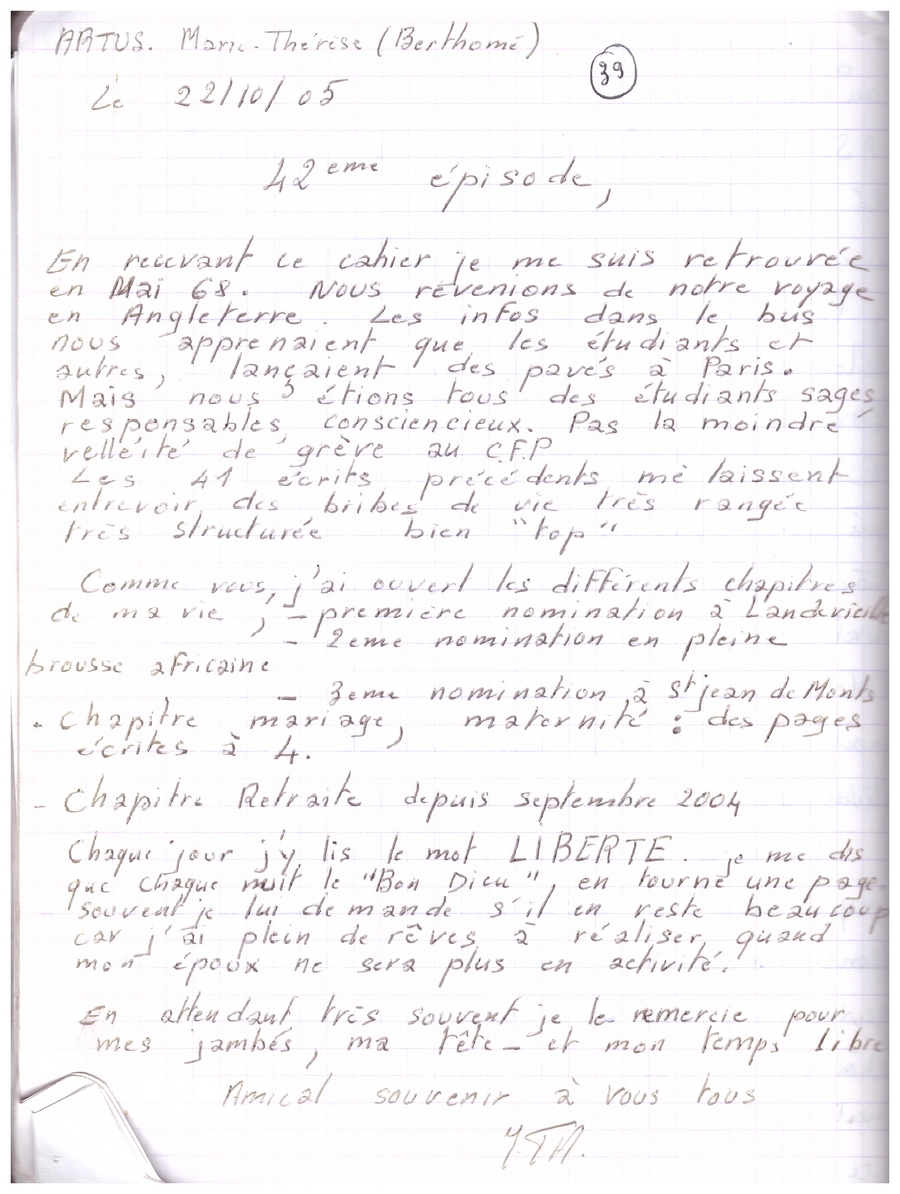 ARTUS. Marie-Thérèse (Berthomé)
39
Le 22/10/05
42eme épisode,
En recevant ce cahier je me suis retrouvée
en Mai 68. Nous revenions de notre voyage
en Angleterre. Les infos dans le bus
nous apprenaient que les étudiants et
autres, lançaient des pavés à Paris.
Mais nous étions tous des étudiants sages,
responsables, consciencieux. Pas la moindre
velléité de grève au C.F.P
Les 41 écrits précédents me laissent
entrevoir des bribes de vie très rangée
très structurée bien "top"
Comme vous, j'ai ouvert les différents chapitres
de ma vie ; - première nomination à Landevieille
- 2eme nomination en pleine
brousse africaine
- 3eme nomination à St jean de Monts
- Chapitre mariage, maternité : des pages
écrites à 4.
- Chapitre Retraite depuis septembre 2004
Chaque jour j'y lis le mot LIBERTE. je me dis
que chaque nuit le "Bon Dieu", en tourne une page-
souvent je lui demande s'il en reste beaucoup
car j'ai plein de rêves à réaliser, quand
mon époux ne sera plus en activité.
En attendant, très souvent je le remercie pour
mes jambés, ma tête - et mon temps libre
Amical souvenir à vous tous